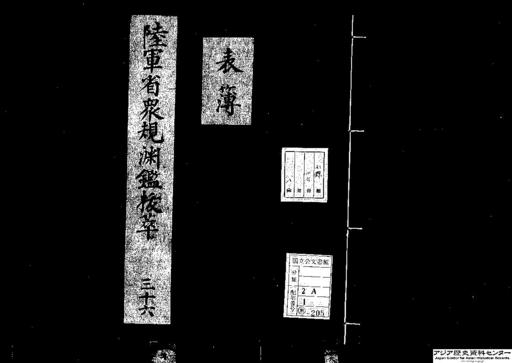 陸軍省衆規渕鑑抜萃 三十六
表簿
国立公文書館
分類
配架番号
2 A
1
205
アジア歴史資料センター
Japan Center for Asian Historical Records